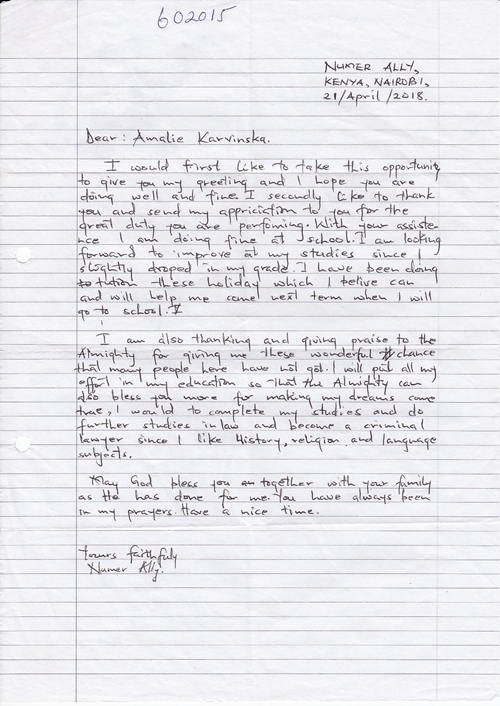 602015
NUMER ALLY,
KENYA, NAIROBI,
21/April/2018.
Dear: Amalie Karvinska.
I would first like to take this opportunity
to give you my greeting and I hope you are
doing well and fine. I secondly like to thank
you and send my appriciation to you for the
great duty you are perfoming. With your assiste-
nce I am doing fine at school. I am looking
forward to improve at my studies since I
slightly droped in my grade. I have been doing
tution these holiday which I belive can
and will help me come next term when I will
go to school.
I am also thanking and giving praise to the
Almighty for giving me these wonderful chance
that many people here have not got. I will put all my
effort in my education so that the Almighty can
also bless you more for making my dreams come
true, I would to complete my studies and do
further studies in law and become a criminal
lawyer since I like History, religion and language
subjects.
May God bless you together with your family
as He has done for me. You have always been
in my prayers. Have a nice time.
Yours faithfuly
Numer Ally.